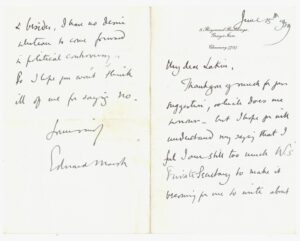 June
5 Raymond Buildings,
Gray's Inn.
My dear Lakin,
Thank you so much for your
suggestion, which does me
honour – but I hope you will
understand my saying that I
feel I am still too much W's
Private Secretary to make it
becoming for me to write about
& besides, I have no desire
whatever to come forward
political controversy.
So I hope you won't think
ill of me for saying no.
Yours
Edward Marsh